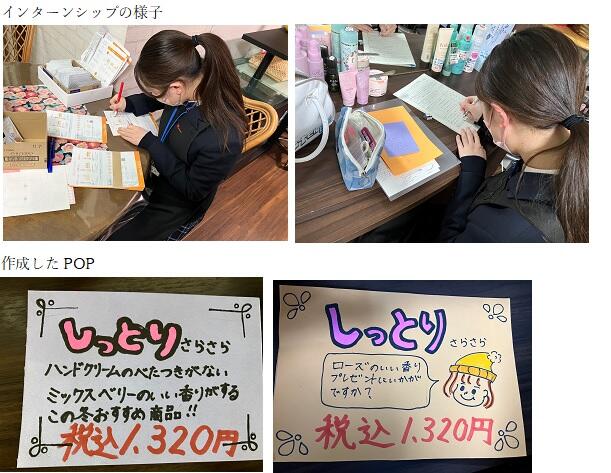 インターンシップの様子
作成した POP
しっとり さらさら
ハンドクリームのべたつきがない
ミックスベリーのいい香りがする
この冬おすすめ商品!!
税込1,320円
しっとり さらさら
ローズのいい香り
プレゼントにいかが
ですか?
税込1,320円